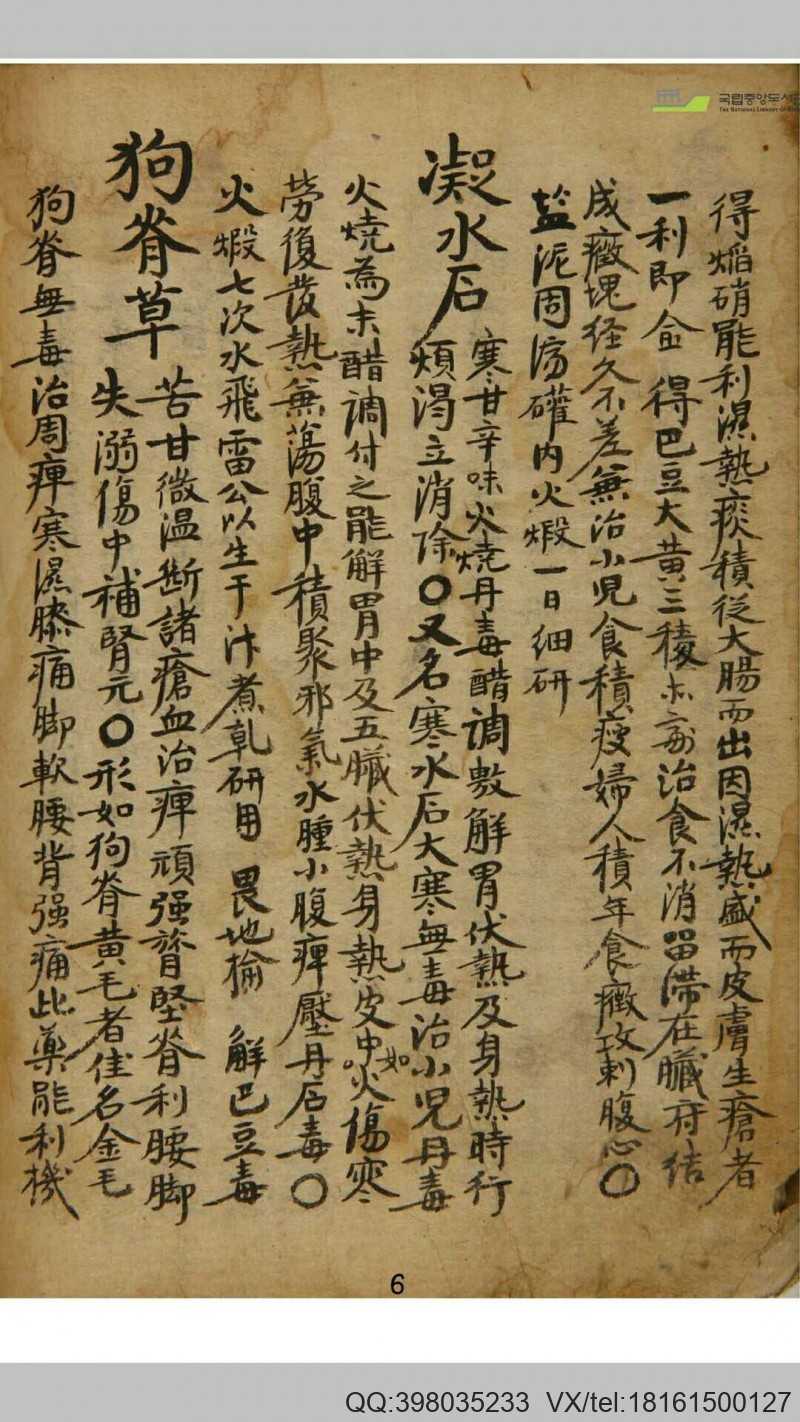 国립중앙도서
THE NATIONAL LIBRARY OF
得焰硝能利濕熱痰積從大腸而出因濕熱盛而皮膚生瘡者
一利即愈 得巴豆大黃三稜 治食不消留滯在臟府結
成癥塊経久不差兼治小児食積瘦婦人積年食癥攻刺腹心〇
盐泥固濟礶内火煅一日細研
凝水石
寒甘辛味火燒丹毒醋調敷解胃伏熱及身熱時行
煩渴立消除〇又名寒水石大寒無毒治小児丹毒
火燒為末醋調付之能解胃中及五臟伏熱身熱皮中如火傷寒
勞復發熱兼蕩腹中積聚邪氣水腫小腹痺壓丹石毒〇
火煅七次水飛雷公以生干汁煮乹研用 畏地榆 解巴豆毒
狗脊草
苦甘微温断諸瘡血治痺頑强膂堅脊利腰脚
失溺傷中補腎元〇形如狗脊黃毛者佳名金毛
狗脊無毒治周痺寒濕膝痛脚軟腰背强痛此藥能利機
6
QQ:398035233 VX/tel:18161500127